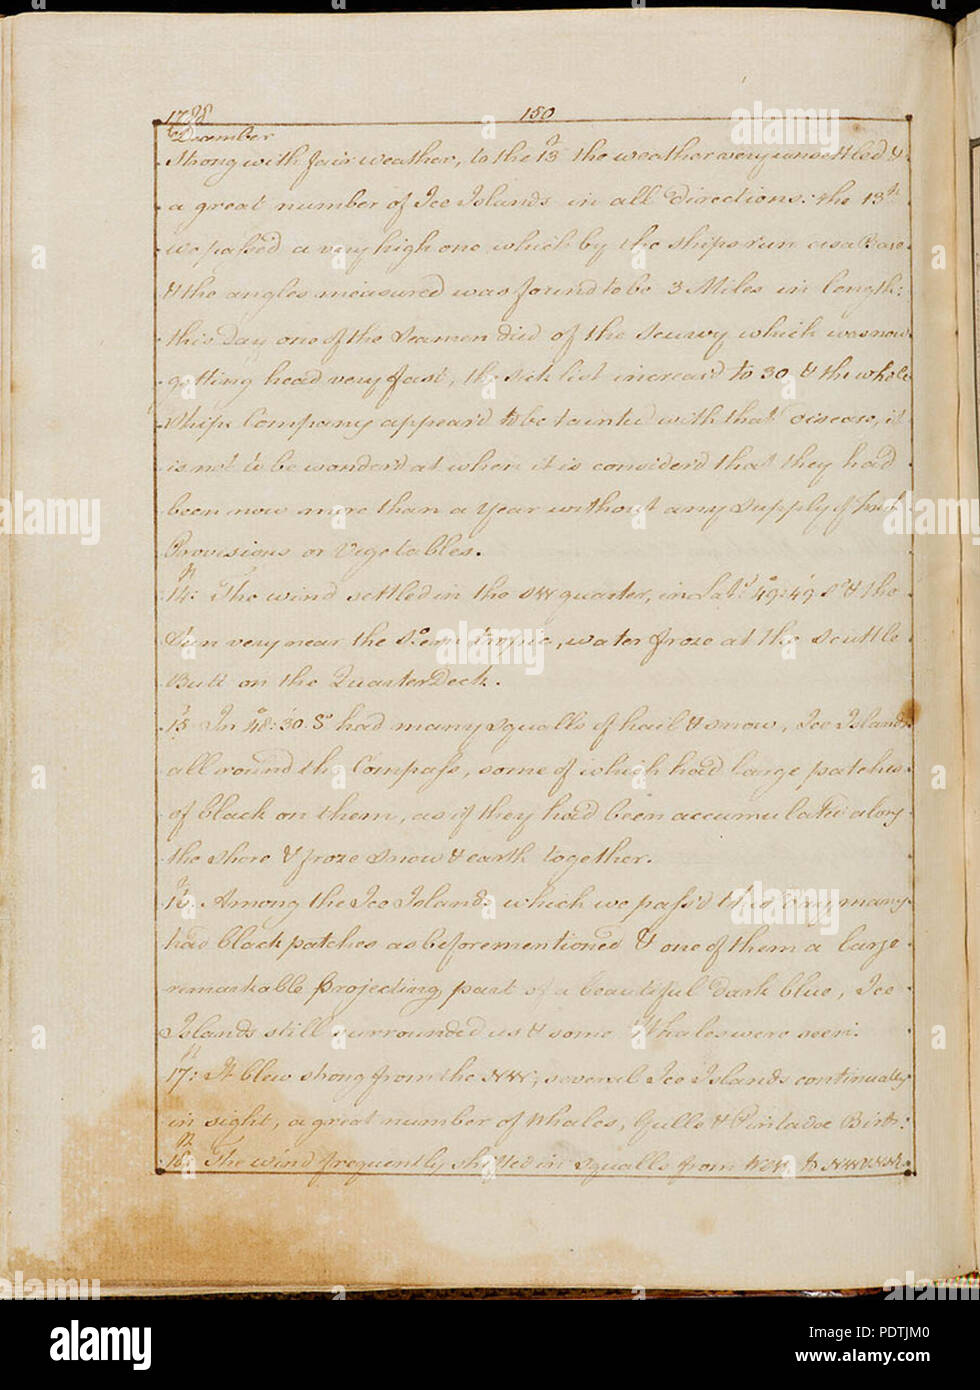 1788 150
December
Strong with fair weather, to the 13th the weather very unsettled &
a great number of Ice Islands in all directions: the 13th
we passed a very high one which by the ships run as a Base
& the angles measured was found to be 3 Miles in length:
this day one of the Seamen died of the scurvy which was now
getting head very fast, the sick list increas'd to 30 & the whole
Ships Company appear'd to be tainted with that disease, it
is not to be wonder'd at when it is consider'd that they had
been now more than a Year without any supply of fresh
Provisions or Vegetables.
14th: The wind settled in the SW quarter, in Latd. 49°:49' So. & the
Sun very near the Soern tropic, water froze at the Scuttle
Butt on the Quarter Deck.
15 In 48°:30' So had many squalls of hail & snow, Ice Islands
all round the Compass, some of which had large patches
of black on them, as if they had been accumulated along
the shore & froze snow & earth together.
16. Among the Ice Islands which we pass'd this day many
had black patches as beforementioned & one of them a large
remarkable projecting part of a beautiful dark blue, Ice
Islands still surrounded us & some Whales were seen:
17th: It blew strong from the NW, several Ice Islands continually
in sight, a great number of Whales, Gulls & Pintadoe Birds:
18th The wind frequently shifted in squalls from to
alamy
Image ID: PDTJM0
www.alamy.com